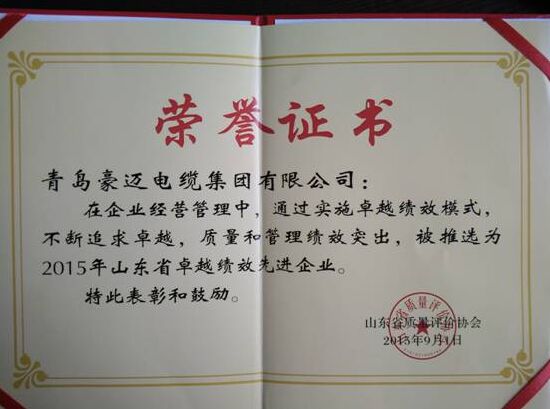 荣誉证书
青岛豪迈电缆集团有限公司：
在企业经营管理中，通过实施卓越绩效模式，
不断追求卓越，质量和管理绩效突出，被推选为
2015年山东省卓越绩效先进企业。
特此表彰和鼓励。
山东省质量评价协会
2015年9月1日